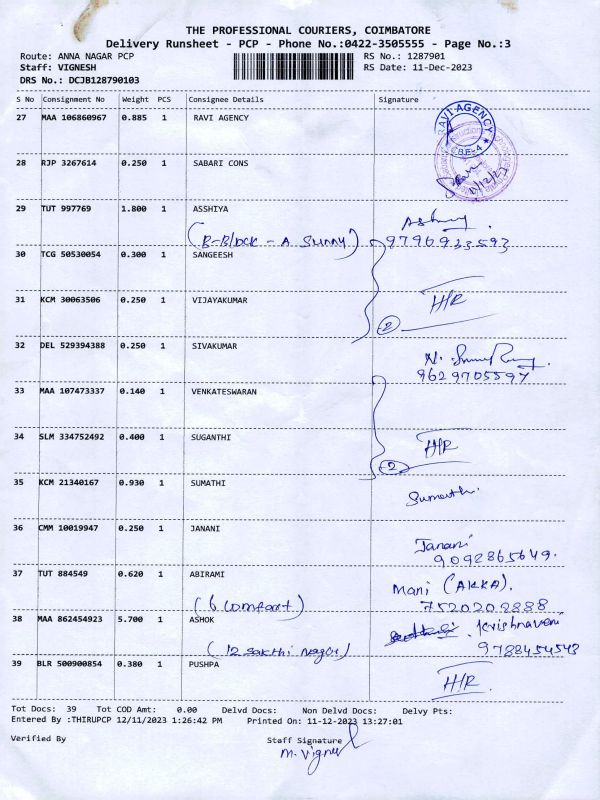 THE PROFESSIONAL COURIERS, COIMBATORE
Delivery Runsheet - PCP - Phone No.:0422-3505555 - Page No.:3
Route: ANNA NAGAR PCP RS No.: 1287901
Staff: VIGNESH RS Date: 11-Dec-2023
DRS No.: DCJB128790103
S No Consignment No Weight PCS Consignee Details Signature
27 MAA 106860967 0.885 1 RAVI AGENCY
RAVI AGENCY
CBE-4
28 RJP 3267614 0.250 1 SABARI CONS
29 TUT 997769 1.800 1 ASSHIYA
(B-Block - A Sunny) 9796933593
30 TCG 50530054 0.300 1 SANGEESH
31 KCM 30063506 0.250 1 VIJAYAKUMAR H/R
2
32 DEL 529394388 0.250 1 SIVAKUMAR
9629705597
33 MAA 107473337 0.140 1 VENKATESWARAN
34 SLM 334752492 0.400 1 SUGANTHI H/R
2
35 KCM 21340167 0.930 1 SUMATHI Sumathi
36 CMM 10019947 0.250 1 JANANI Janani
9092865649.
37 TUT 884549 0.620 1 ABIRAMI Mani (AKKA).
(6 Comfort) 7520202888
38 MAA 862454923 5.700 1 ASHOK Krishnaveni
(12 Sakthi Nagar) 9788454543
39 BLR 500900854 0.380 1 PUSHPA H/R
Tot Docs: 39 Tot COD Amt: 0.00 Delvd Docs: Non Delvd Docs: Delvy Pts:
Entered By :THIRUPCP 12/11/2023 1:26:42 PM Printed On: 11-12-2023 13:27:01
Verified By Staff Signature
M. Vignesh